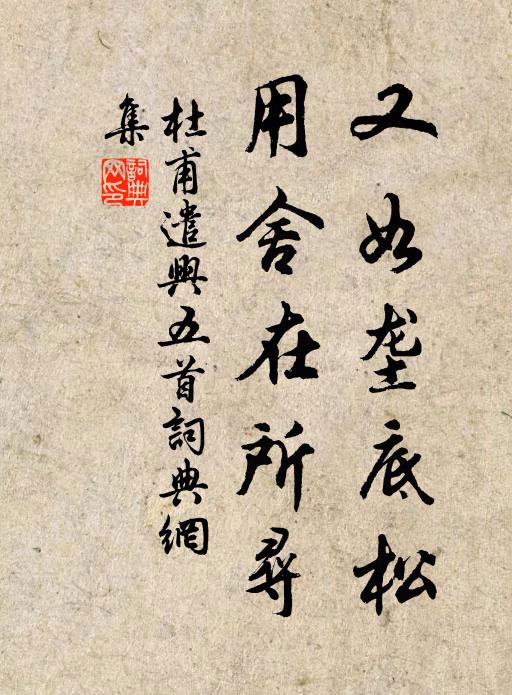 又如垄底松
用舍在所尋
杜甫遣興五首詞典網
集
詞典
网印